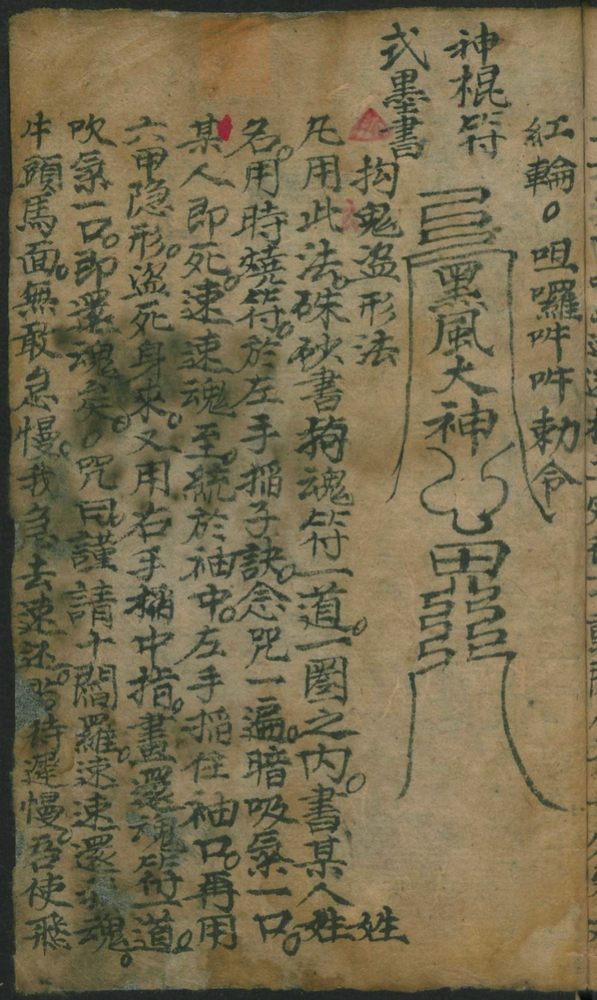 紅輪。呾囉吽吽勅令
神棍符
式墨書
黑風大神
拘鬼盗形法
凡用此法。硃砂書拘魂符一道。一圏之内。書某人姓姓
名。用時焼符。於左手稲子訣。念咒一遍。暗吸氣一口。
某人即死。速速魂至。統於袖中。左手稲住袖口。再用
六甲隐形。盗死身来。又用右手稲中指。畫還魂符一道。
吹氣一口。即還魂矣。咒曰。謹請十閻羅。速速還魂。
牛頭馬面。無敢怠慢。我急去速还。待遲慢。吾使飛